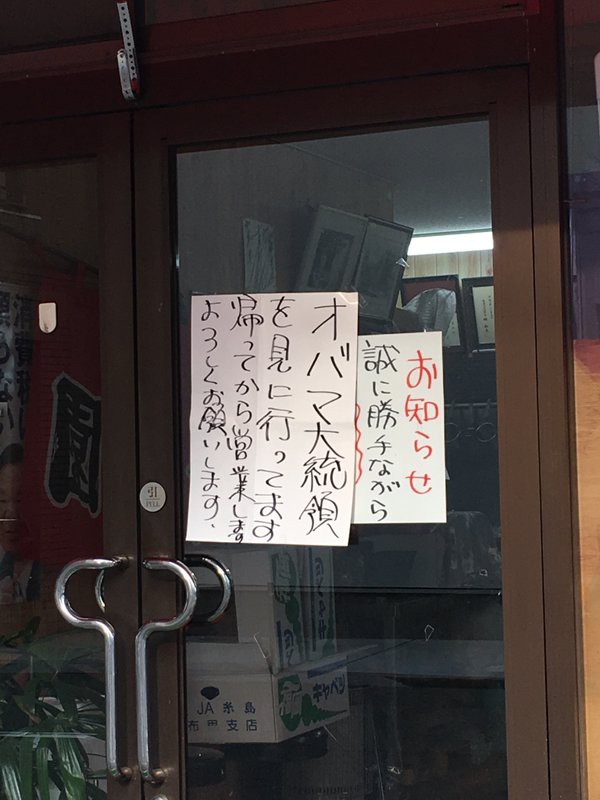 お知らせ
誠に勝手ながら
オバマ大統領
を見に行ってます
帰ってから営業します
よろしくお願いします、
引
PULL
JA糸島